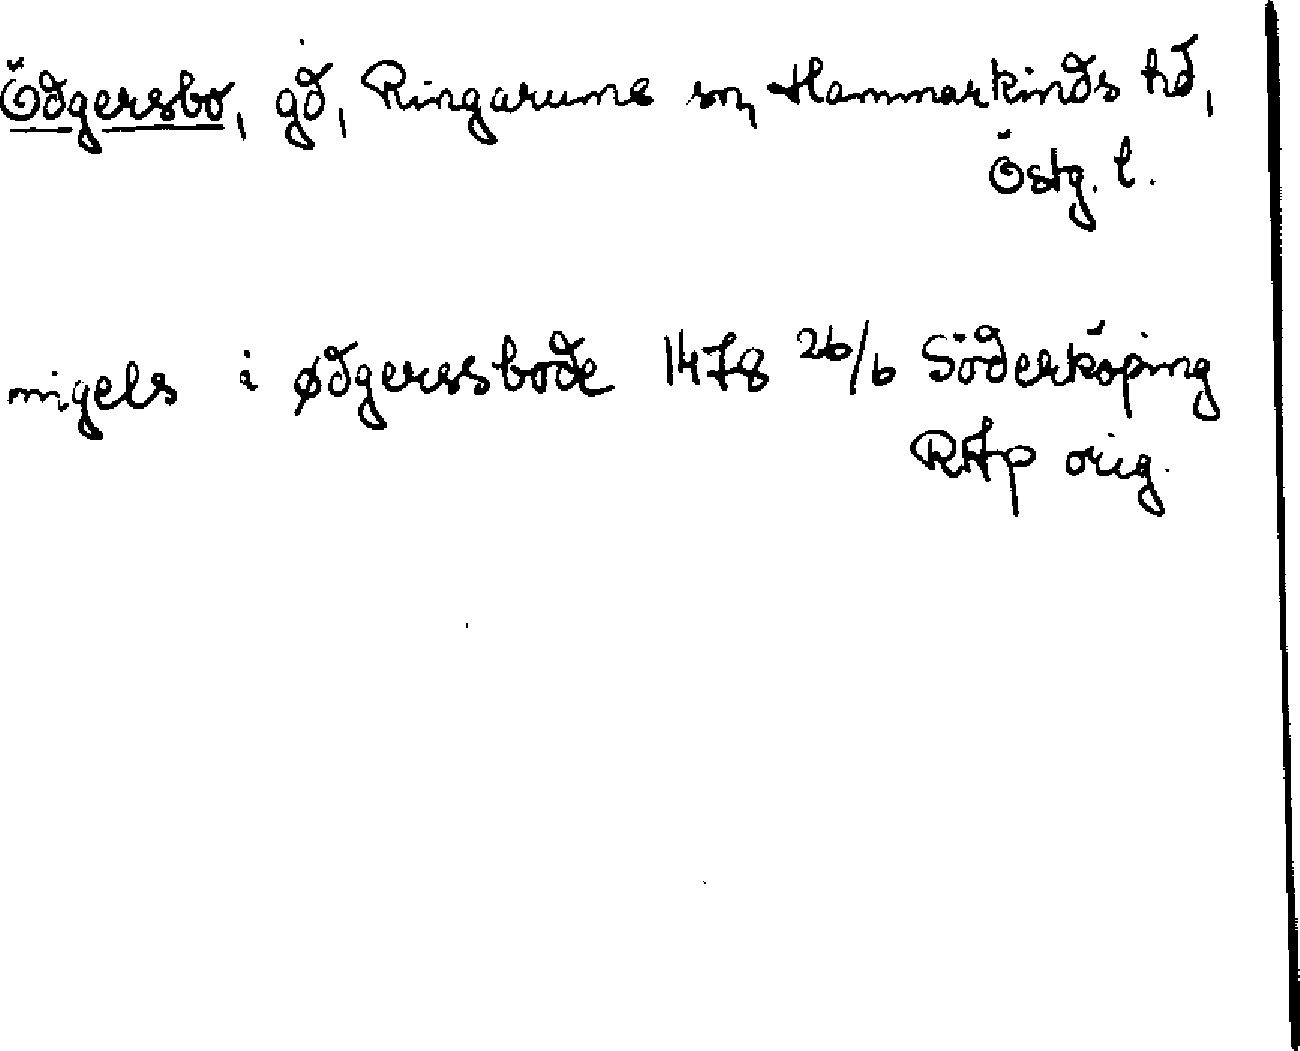 Ödgersbo, gd, Ringarums sn, Hammarkinds hd,
Östg. l.
nigels i ødgerssbode 1478 26/6 Söderköping
RAp orig.